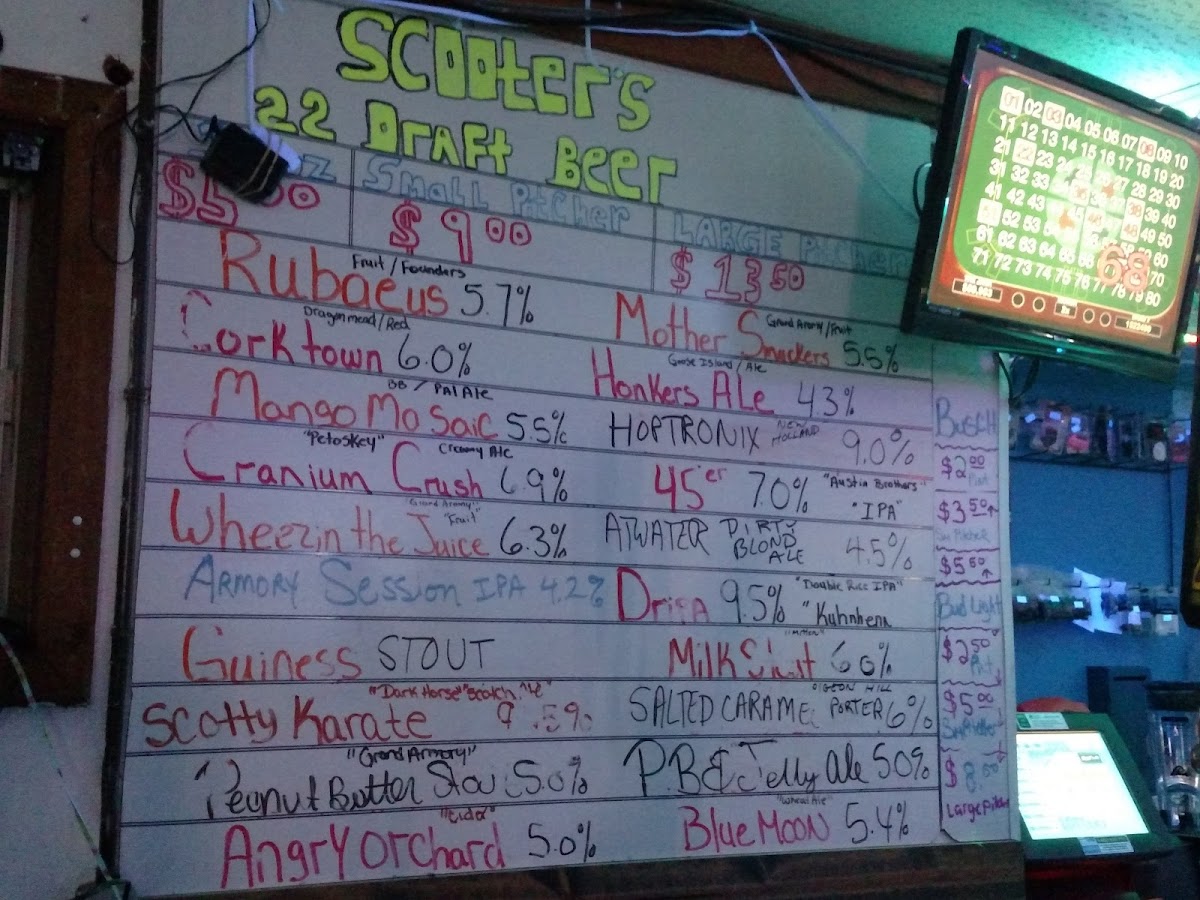 SCOOTER'S
22 DRAFT BEER
OZ
$5.00
SMALL PITCHER
$9.00
LARGE PITCHER
$13.50
Fruit/Founders
Rubaeus 5.7%
Dragonmead/Red
Corktown 6.0%
BB / Pal Ale
Mango Mosaic 5.5%
"Petoskey"
Creamy Ale
Cranium Crush 6.9%
"Grand Armory"
"Fruit"
Wheezin the Juice 6.3%
ARMORY Session IPA 4.2%
Guiness STOUT
"Dark Horse" "Scotch Ale"
Scotty Karate 9.5%
"Grand Armory"
Peanut Butter Stou 5.0%
"Cider"
Angry Orchard 5.0%
Grand Armory/Fruit
Mother Smuckers 5.5%
Goose Island / Ale
Honkers Ale 4.3%
HOPTRONIX NEW HOLLAND 9.0%
45er 7.0% "Austin Brothers"
"IPA"
ATWATER DIRTY BLOND ALE 4.5%
9.5% "Double Rice IPA"
"Kuhnhenn
"Mitten"
Milk Stout 6.0%
PIGEON HILL
SALTED CARAMEL PORTER 6%
P.B & Jelly Ale 5.0%
"Wheat Ale"
Blue Moon 5.4%
BUSCH
$2.00
Pint
$3.50
Sm Pitcher
$5.50
Bud Light
$2.50
Pint
$5.00
Sm Pitcher
$8.50
Large Pitcher
01 02 03 04 05 06 07 08 09 10
11 12 13 14 15 16 17 18 19 20
21 22 23 28 29 30
31 32 33 39 40
41 42 43 49 50
51 52 53 60
61 62 63 64 65 66 68 70
71 72 73 74 75 76 77 78 79 80